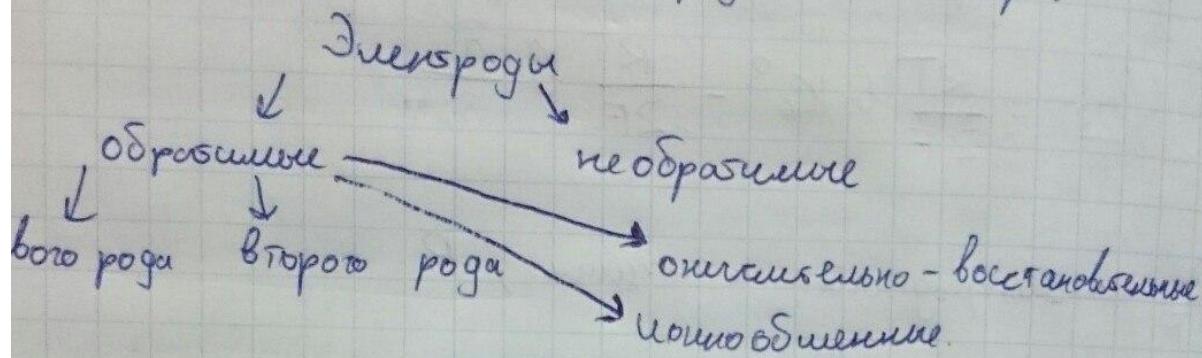 Электроды
обратимые необратимые
вого рода второго рода окислительно-восстановительные
ионнообменные.